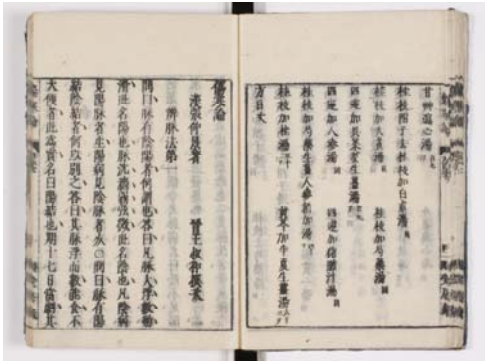 甘艸瀉心湯
桂枝附子去桂枝加白朮湯
桂枝加大黃湯　桂枝加芍藥湯
四逆加吳茱萸生薑湯
四逆加人參湯　四逆加猪膽汁湯
桂枝加芍藥生薑人參新加湯
桂枝加桂湯　黃芩加半夏生薑湯
方目次
傷寒論
漢張仲景著　晉王叔和撰次
辨脈法第一
問曰脈有陰陽者何謂也答曰凡脈大浮數動
滑此名陽也脈沈濇弱弦微此名陰也凡陰病
見陽脈者生陽病見陰脈者死○問曰脈有陽
結陰結者何以別之答曰其脈浮而數能食不
大便者此爲實名曰陽結也期十七日當劇其